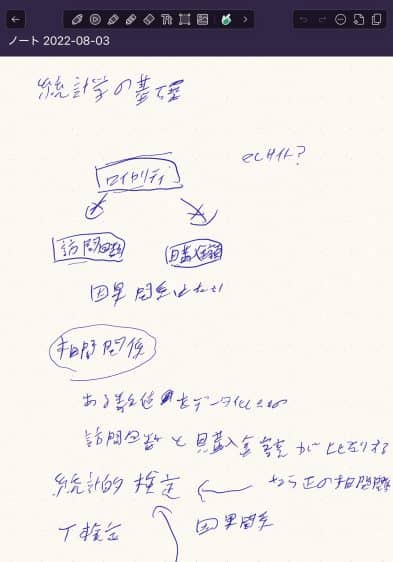 ノート 2022-08-03
統計学の基礎
ECサイト?
ロイヤリティ
訪問回数 購入金額
因果関係はない
相関関係
ある数値をデータ化
訪問回数と購入金額が比例する
統計的検定 ← なら正の相関関係
T検定 因果関係